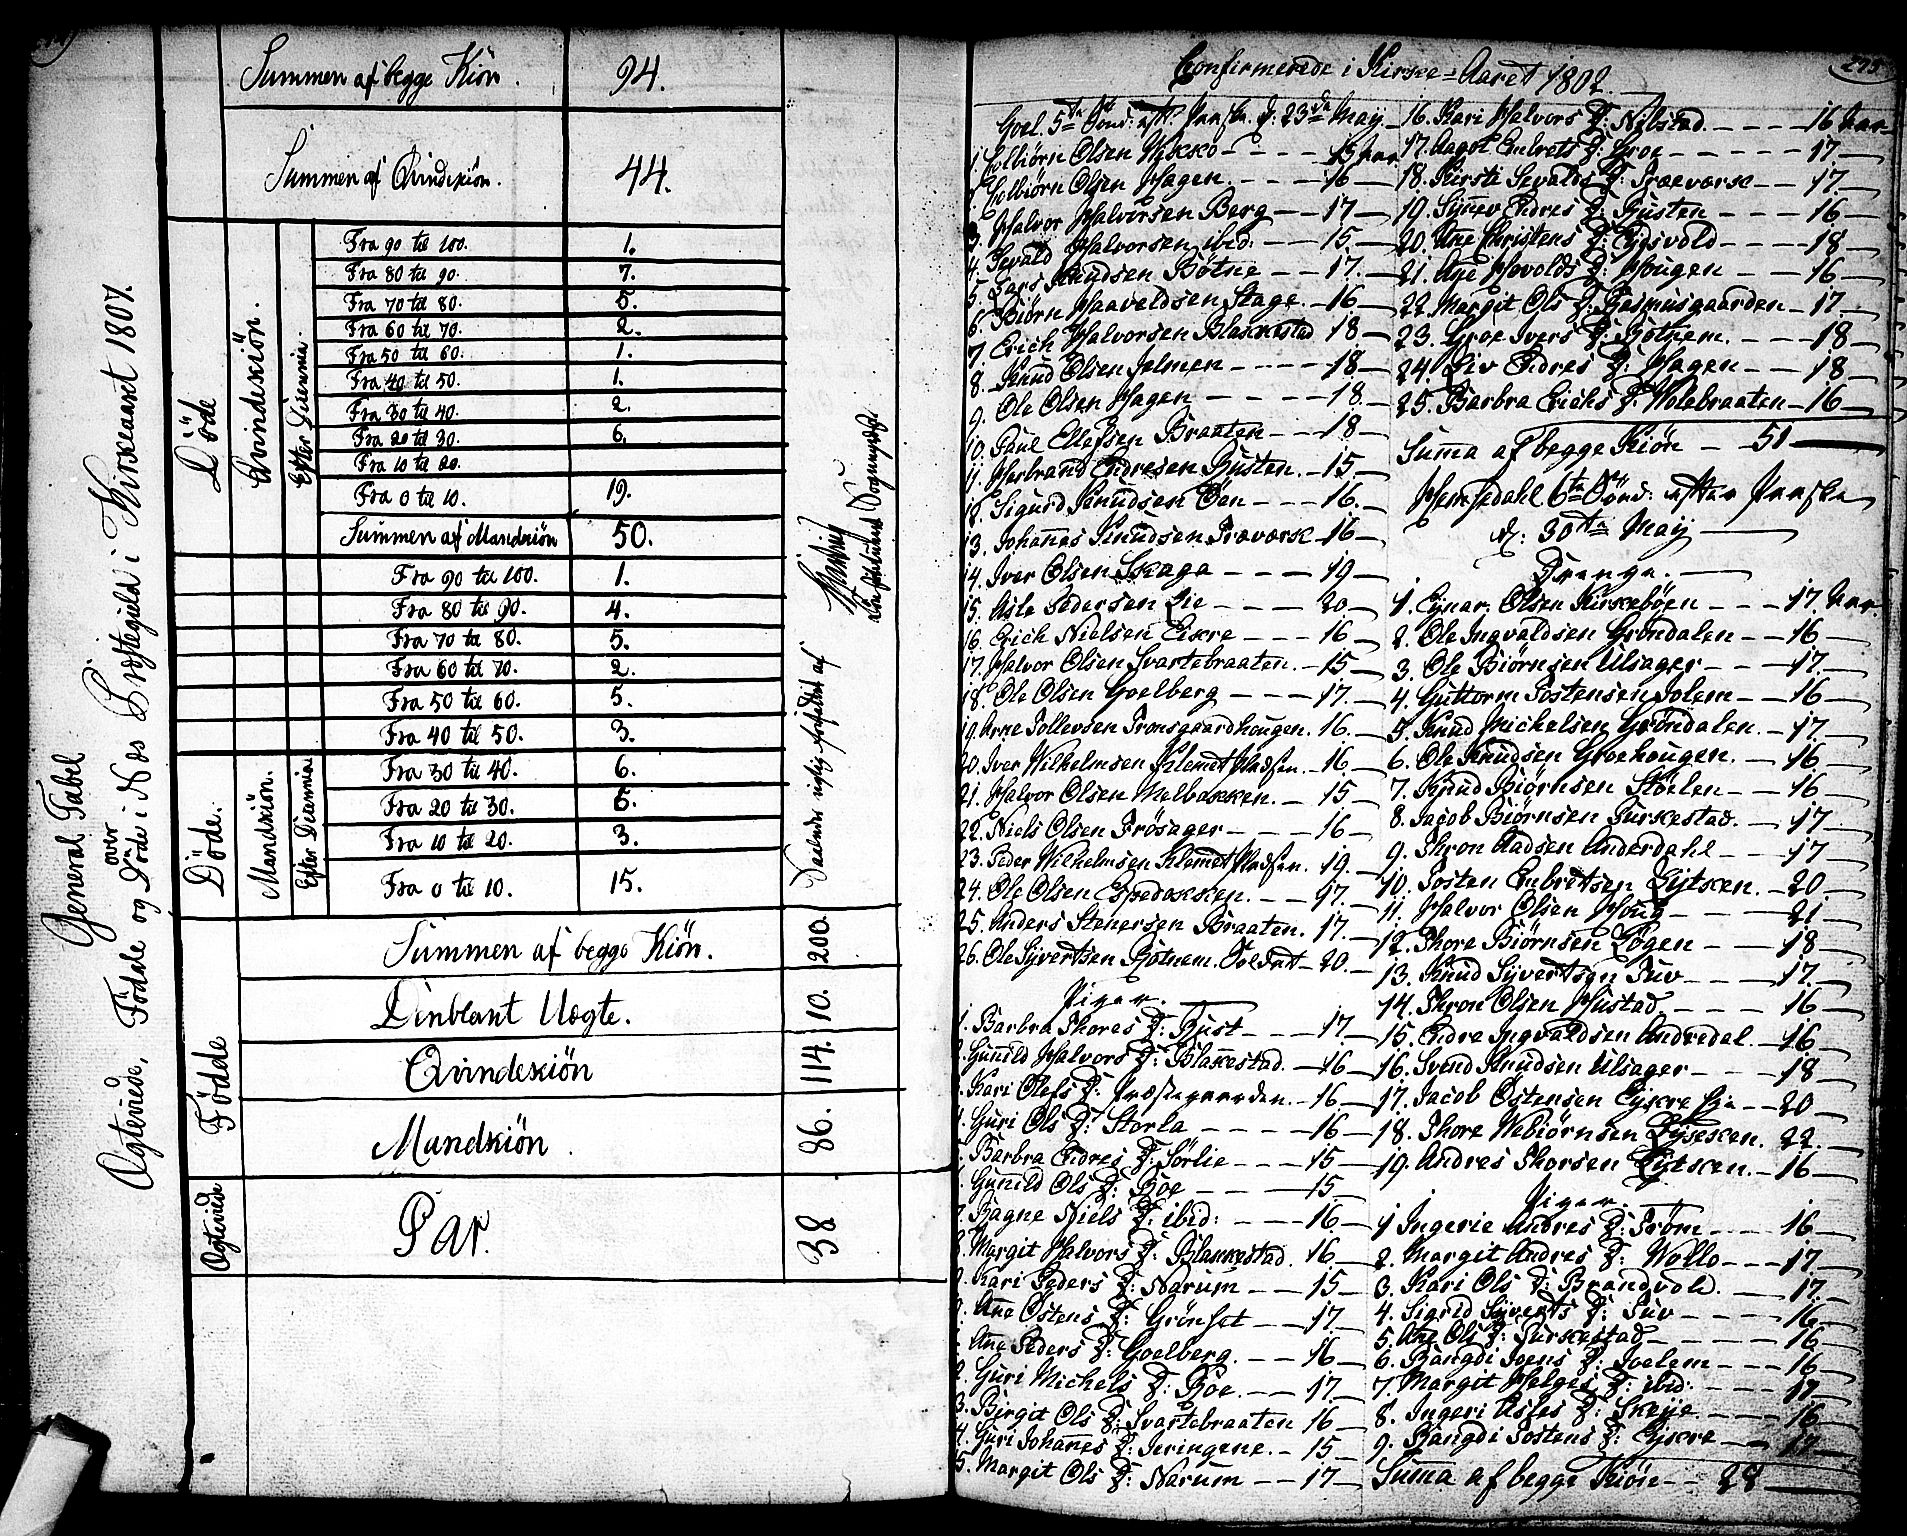 General Tabel
over
Ægteviede, Födde og Döde i Næs Præstegield i Kirkeaaret 1801.
Summen af begge Kiön. 94.
Summen af Qvindekiön. 44.
Döde
Qvindekiön.
Efter Decennia
Fra 90 til 100. 1.
Fra 80 til 90. 7.
Fra 70 til 80. 5.
Fra 60 til 70. 2.
Fra 50 til 60. 1.
Fra 40 til 50. 1.
Fra 30 til 40. 2.
Fra 20 til 30. 6.
Fra 10 til 20.
Fra 0 til 10. 19.
Summen af Mandkiön 50.
Fra 90 til 100. 1.
Fra 80 til 90. 4.
Fra 70 til 80. 5.
Fra 60 til 70. 2.
Fra 50 til 60. 5.
Fra 40 til 50. 3.
Döde.
Mandkiön.
Efter Decennia
Fra 30 til 40. 6.
Fra 20 til 30. 5.
Fra 10 til 20. 3.
Fra 0 til 10. 15.
Födde
Summen af begge Kiön. 200.
Deriblant Uægte. 10.
Qvindekiön 114.
Mandkiön 86.
Ægteviede
Par. 38
Saaledes rigtig forfattet af
Confirmerede i Kirke-Aaret 1802.
275
Goel. 5te Sönd: eft. Paask. d: 23de Maij
1. Colbiörn Olsen 15 Aar
2. Colbiörn Olsen Hagen. 16
3. Halvor Halvorsen Berg 17
4. Sevald Halvorsen ibid: 15
5. Lars Knudsen Bötne 17.
6. Biörn Haavaldsen Stage. 16
7 Erich Halvorsen Blakkestad 18
8. Knud Olsen Jelmen 18
9. Ole Olsen Hagen 18
10. Paul Ellefsen Braaten 18
11. Herbrand Endresen Rusten. 15
12. Sigurd Knudsen Öen 16.
13. Johannes Knudsen Træværk 16
14. Iver Olsen Skaga 19
15. Asle Pedersen Lie 20
16. Erich Nielsen Eikre 16
17. Halvor Olsen Svartebraaten. 15
18. Ole Olsen Goelberg 17.
19. Arne Tollevsen Tronsgaardhougen. 16.
20. Iver Wilhelmsen Klemet Pladsen. 16
21. Halvor Olsen Melbakken. 15
22. Niels Olsen Frösager 16
23. Peder Wilhelmsen Klemet Pladsen. 19.
24. Ole Olsen Espedokken. 17.
25. Anders Stenersen Braaten. 17.
26. Ole Syvertsen Rotnem. 20.
Piger.
1. Barbra Thores D: Rust 17.
2. Gunild Halvors D: Blakkestad. 16
3. Kari Olefs D: Præstegaarden. 16
4. Guri Ols D: Storla 16
5. Barbra Endres D: Sörlie 15
6. Gunild Ols D: Roe 15
7. Ragne Niels D: ibid: 16
8. Margit Halvors D: Blakkestad. 16
9. Kari Peders D: Narum 15
10. Ane Östens D: Grönset 17
11. Ane Peders D: Goelberg. 16
12. Guri Michels D: Roe. 17
13. Birgit Ols D: Svartebraaten 16
14. Guri Johannes D: Jeringene. 15
15. Margit Ols D: Narum 17
16. Kari Halvors D: Nibstad. 16 Aar
17. Aagot Embrets D: Groe 17
18. Kirsti Sevalds D: Træværk 17.
19. Synnev Endres D: Rusten 16
20. Ane Christens D: Eidsvold 18
21. Ane Hovolds D: Hougen 16
22. Margit Ols D: Rasmusgaarden 17.
23. Groe Ivers D: Rotnem. 18
24. Liv Endres D: Hagen 18
25. Barbra Erichs D: Wolebraaten 16
Suma af begge Kiön 51
Hemsedahl 6te Sönd: efter Paaske
d: 30te Maij
Drenge.
1. Ejnar Olsen Kirkeböen 17 Aar
2. Ole Ingvaldsen Gröndalen 16
3. Ole Biörnsen Ulsager 17.
4. Guttorm Tostensen Jolem 16
5. Knud Michelsen Gröndalen. 17.
6. Ole Knudsen Groehougen. 16
7. Knud Biörnsen Stölen 16
8. Jacob Biörnsen Turkestad. 17
9. Thron Aadsen Anderdahl 17
10. Tosten Embretsen Eytsken. 20
11. Halvor Olsen Houg 21
12. Thore Biörnsen Lögen 18
13. Knud Syvertsen Tuv 17.
14. Thron Olsen Hustad 16
15. Endre Ingvaldsen Andredal. 16
16. Svend Knudsen Ulsager 18
17. Jacob Östensen Eykre Eje 20
18. Thore Webiörnsen 22.
19. Andres Thorsen 16
Piger
1 Ingerie Andres D: Tröm 16
2. Margit Andres D: Wollo 17
3. Kari Ols D: Brandvold. 17.
4. Sigrid Syverts D: Tuv 16
5. Ane Ols D: Turkestad 16
6. Rangdi Joens D: Joelem 16
7. Margit Helges D: ibid: 17
8. Ingeri Asles D: Skeye. 16
9. Rangdi Tostens D: Eykre 17
Suma af begge Kiön 28